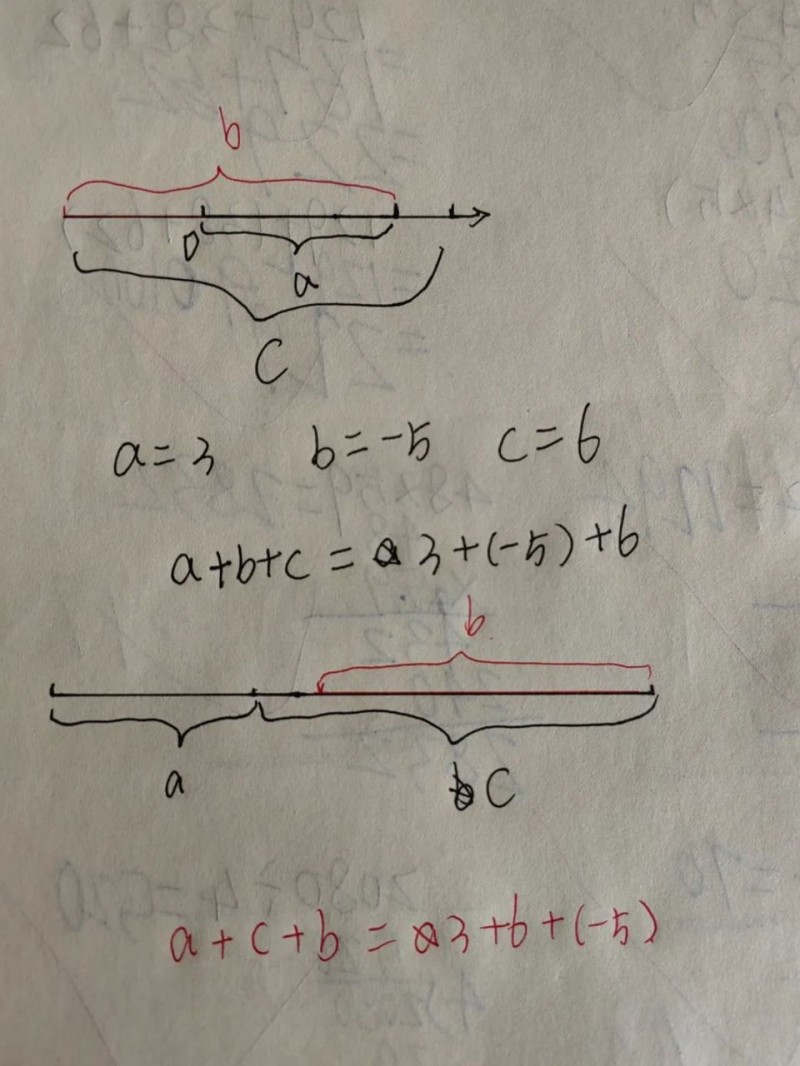 b
0
a
C
a=3 b=-5 c=6
a+b+c = 3+(-5)+6
b
a C
a+c+b = 3+6+(-5)